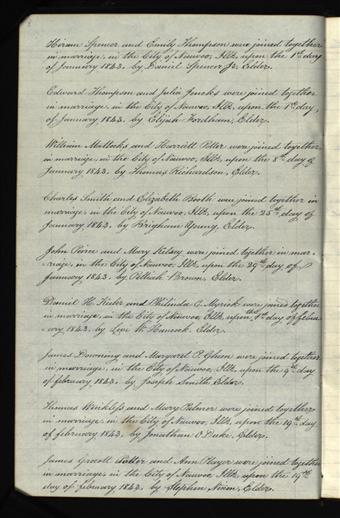 Hiram Spencer and Emily Thompson were joined together
in marriage, in the City of Nauvoo, Ills. upon the 1st day
of January 1843. by Daniel Spencer Jr. Elder.
Edward Thompson and Julia Jincks were joined together
in marriage, in the City of Nauvoo, Ills. upon the 1st day,
of January 1843. by Elijah Fordham, Elder.
William and Harriett were joined together
in marriage, in the City of Nauvoo, Ills. upon the 8th day of
January 1843. by Thomas Richardson, Elder.
Charles Smith and Elizabeth Booth were joined together in
marriage in the City of Nauvoo, Ills. upon the 25th day of
January 1843. by Brigham Young, Elder.
John and Mary Kelsey were joined together in mar-
riage, in the City of Nauvoo, Ills. upon the 29th day of
January 1843. by Brown, Elder.
Daniel H. and C. Myrick were joined together
in marriage, in the City of Nauvoo, Ills. upon the 1st day of Febru
ary 1843. by Levi W. Hancock. Elder.
James Downing and Margaret P. were joined together
in marriage, in the City of Nauvoo, Ills. upon the 9th day
of February 1843. by Joseph Smith, Elder.
Thomas and Mary Palmer were joined together
in marriage, in the City of Nauvoo, Ills. upon the 19th day
of February 1843. by Jonathan O Duke, Elder.
James and Ann Player were joined together
in marriage, in the City of Nauvoo Ills. upon the 19th
day of February 1843. by Stephen Nixon, Elder.